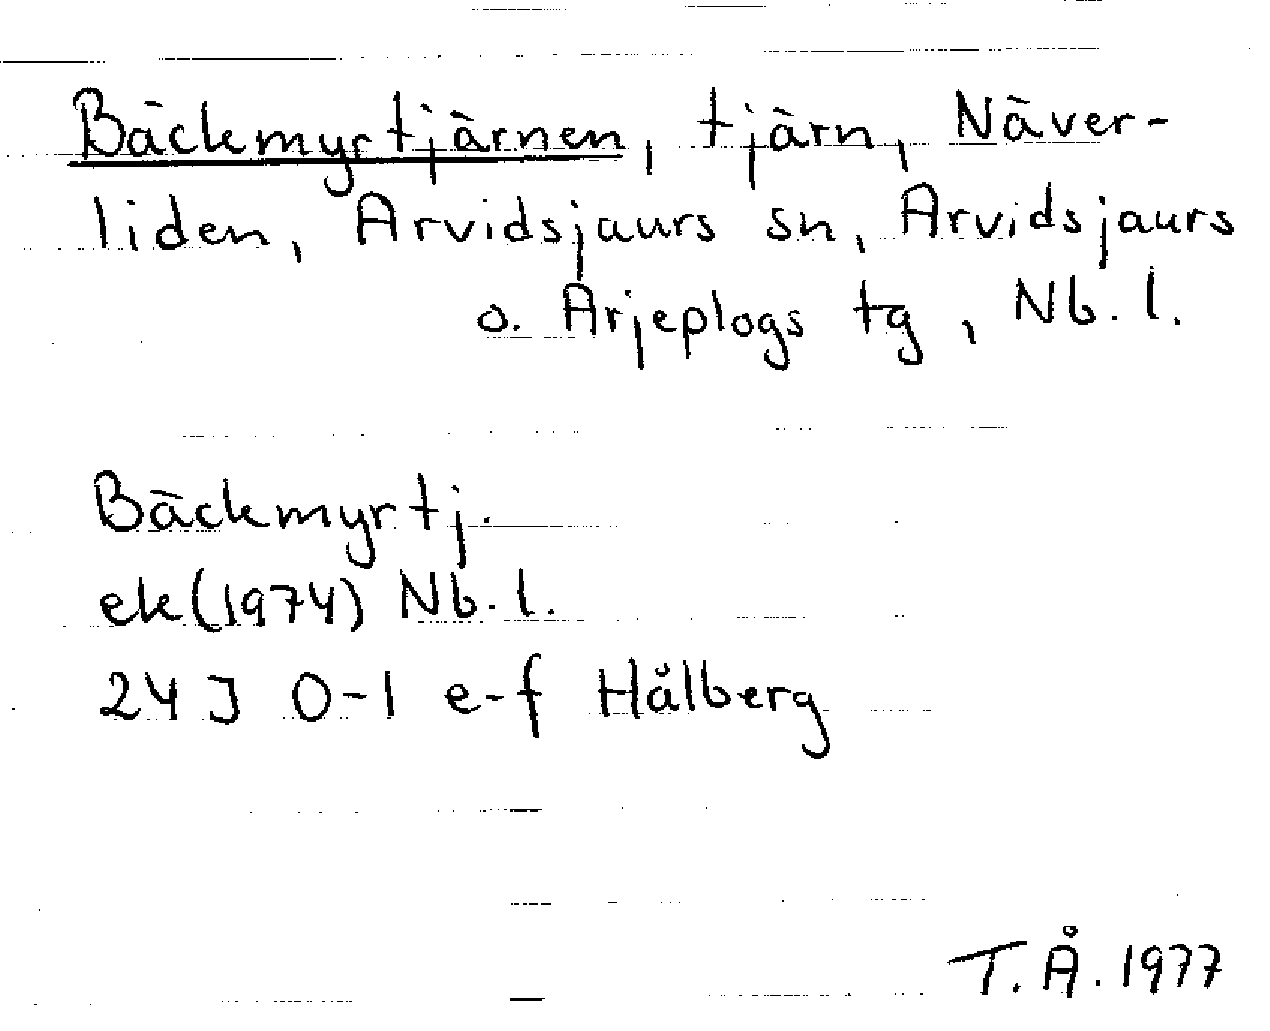 Bäckmyrtjärnen, tjärn, Näver-
liden, Arvidsjaurs sn, Arvidsjaurs
o. Arjeplogs tg, Nb. l.
Bäckmyrtj.
ek(1974) Nb. l.
24 J 0-1 e-f Hålberg
T. Å. 1977